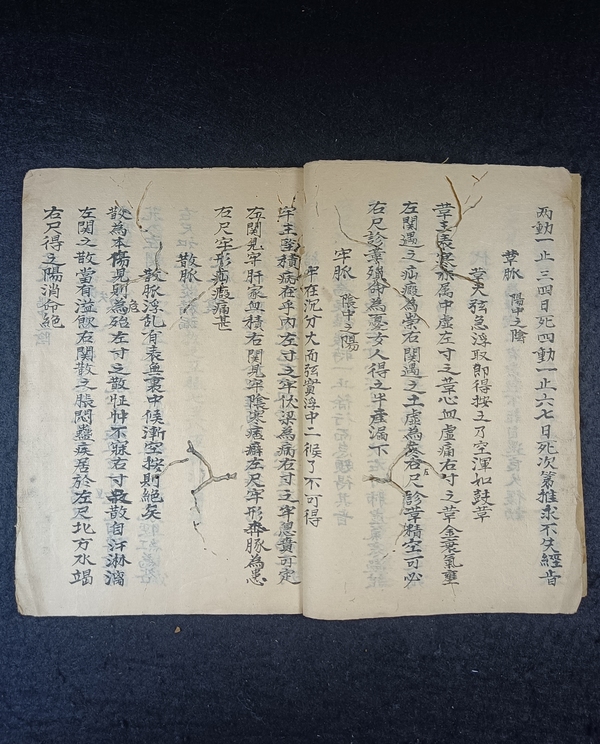 两動一止三四日死四動一止六七日死次第推求不失經旨
草脈 陽中之陰
草大弦急浮取即得按之乃空渾如鼓草
草主表寒亦属中虚左寸之草心血虚痛右寸之草金衰氣壅
左関遇之疝瘕為祟右関遇之土虚為疼右尺診草精空可必
右尺診草殞命為憂女人得之半產漏下
牢脈 陰中之陽
牢在沉分大而弦實浮中二候了不可得
牢主坚積病在乎内左寸之牢伏梁為病右寸之牢息賁可定
左関見牢肝家血積右関見牢陰寒痞癖左尺牢形奔豚為患
右尺牢形疝瘕痛甚
散脈
散脈浮乱有表無裏中候漸空按則絕矣
散為本傷見則為殆左寸之散怔忡不寐右寸之散自汗淋漓
危
左関之散當有溢飲右関散之脹悶蠱疾居於左尺北方水竭
右尺得之陽消命絕